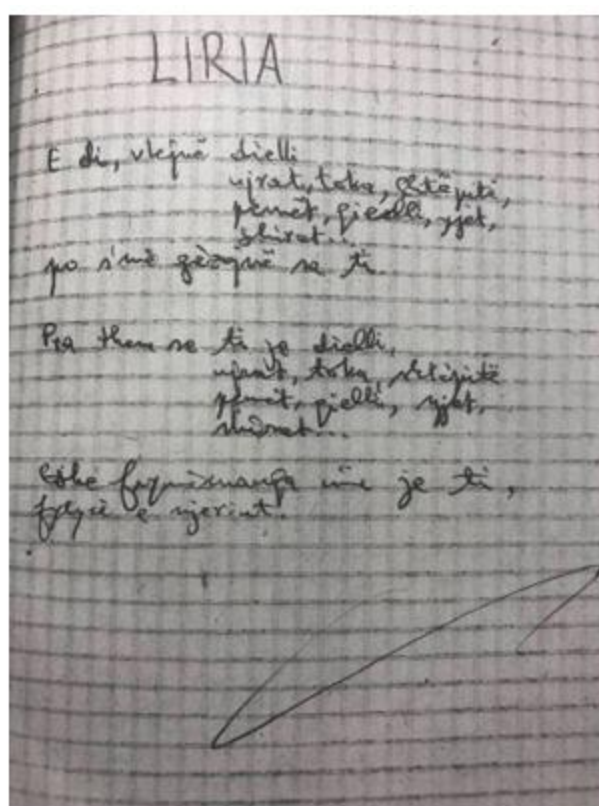 LIRIA
E di, vlejnë dielli
ujrat, toka, shtëpitë,
pemët, qielli, yjet,
shirat...
po s'më gëzojnë sa ti.
Pra them se ti je dielli,
ujrat, toka, shtëpitë
pemët, qielli, yjet,
shirat...
Edhe frymëmarrja ime je ti,
e njeriut.